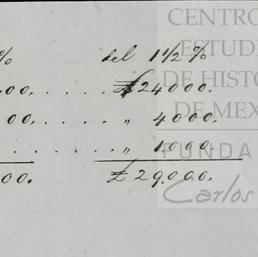 % del 1 1/2 %
00. . . . . . £24000.
00. . . . . . " 4000.
. . . . . . " 1.000.
00. £29.000.
CENTRO
ESTUDI
DE HISTO
DE MEX
FUNDA
Carlos